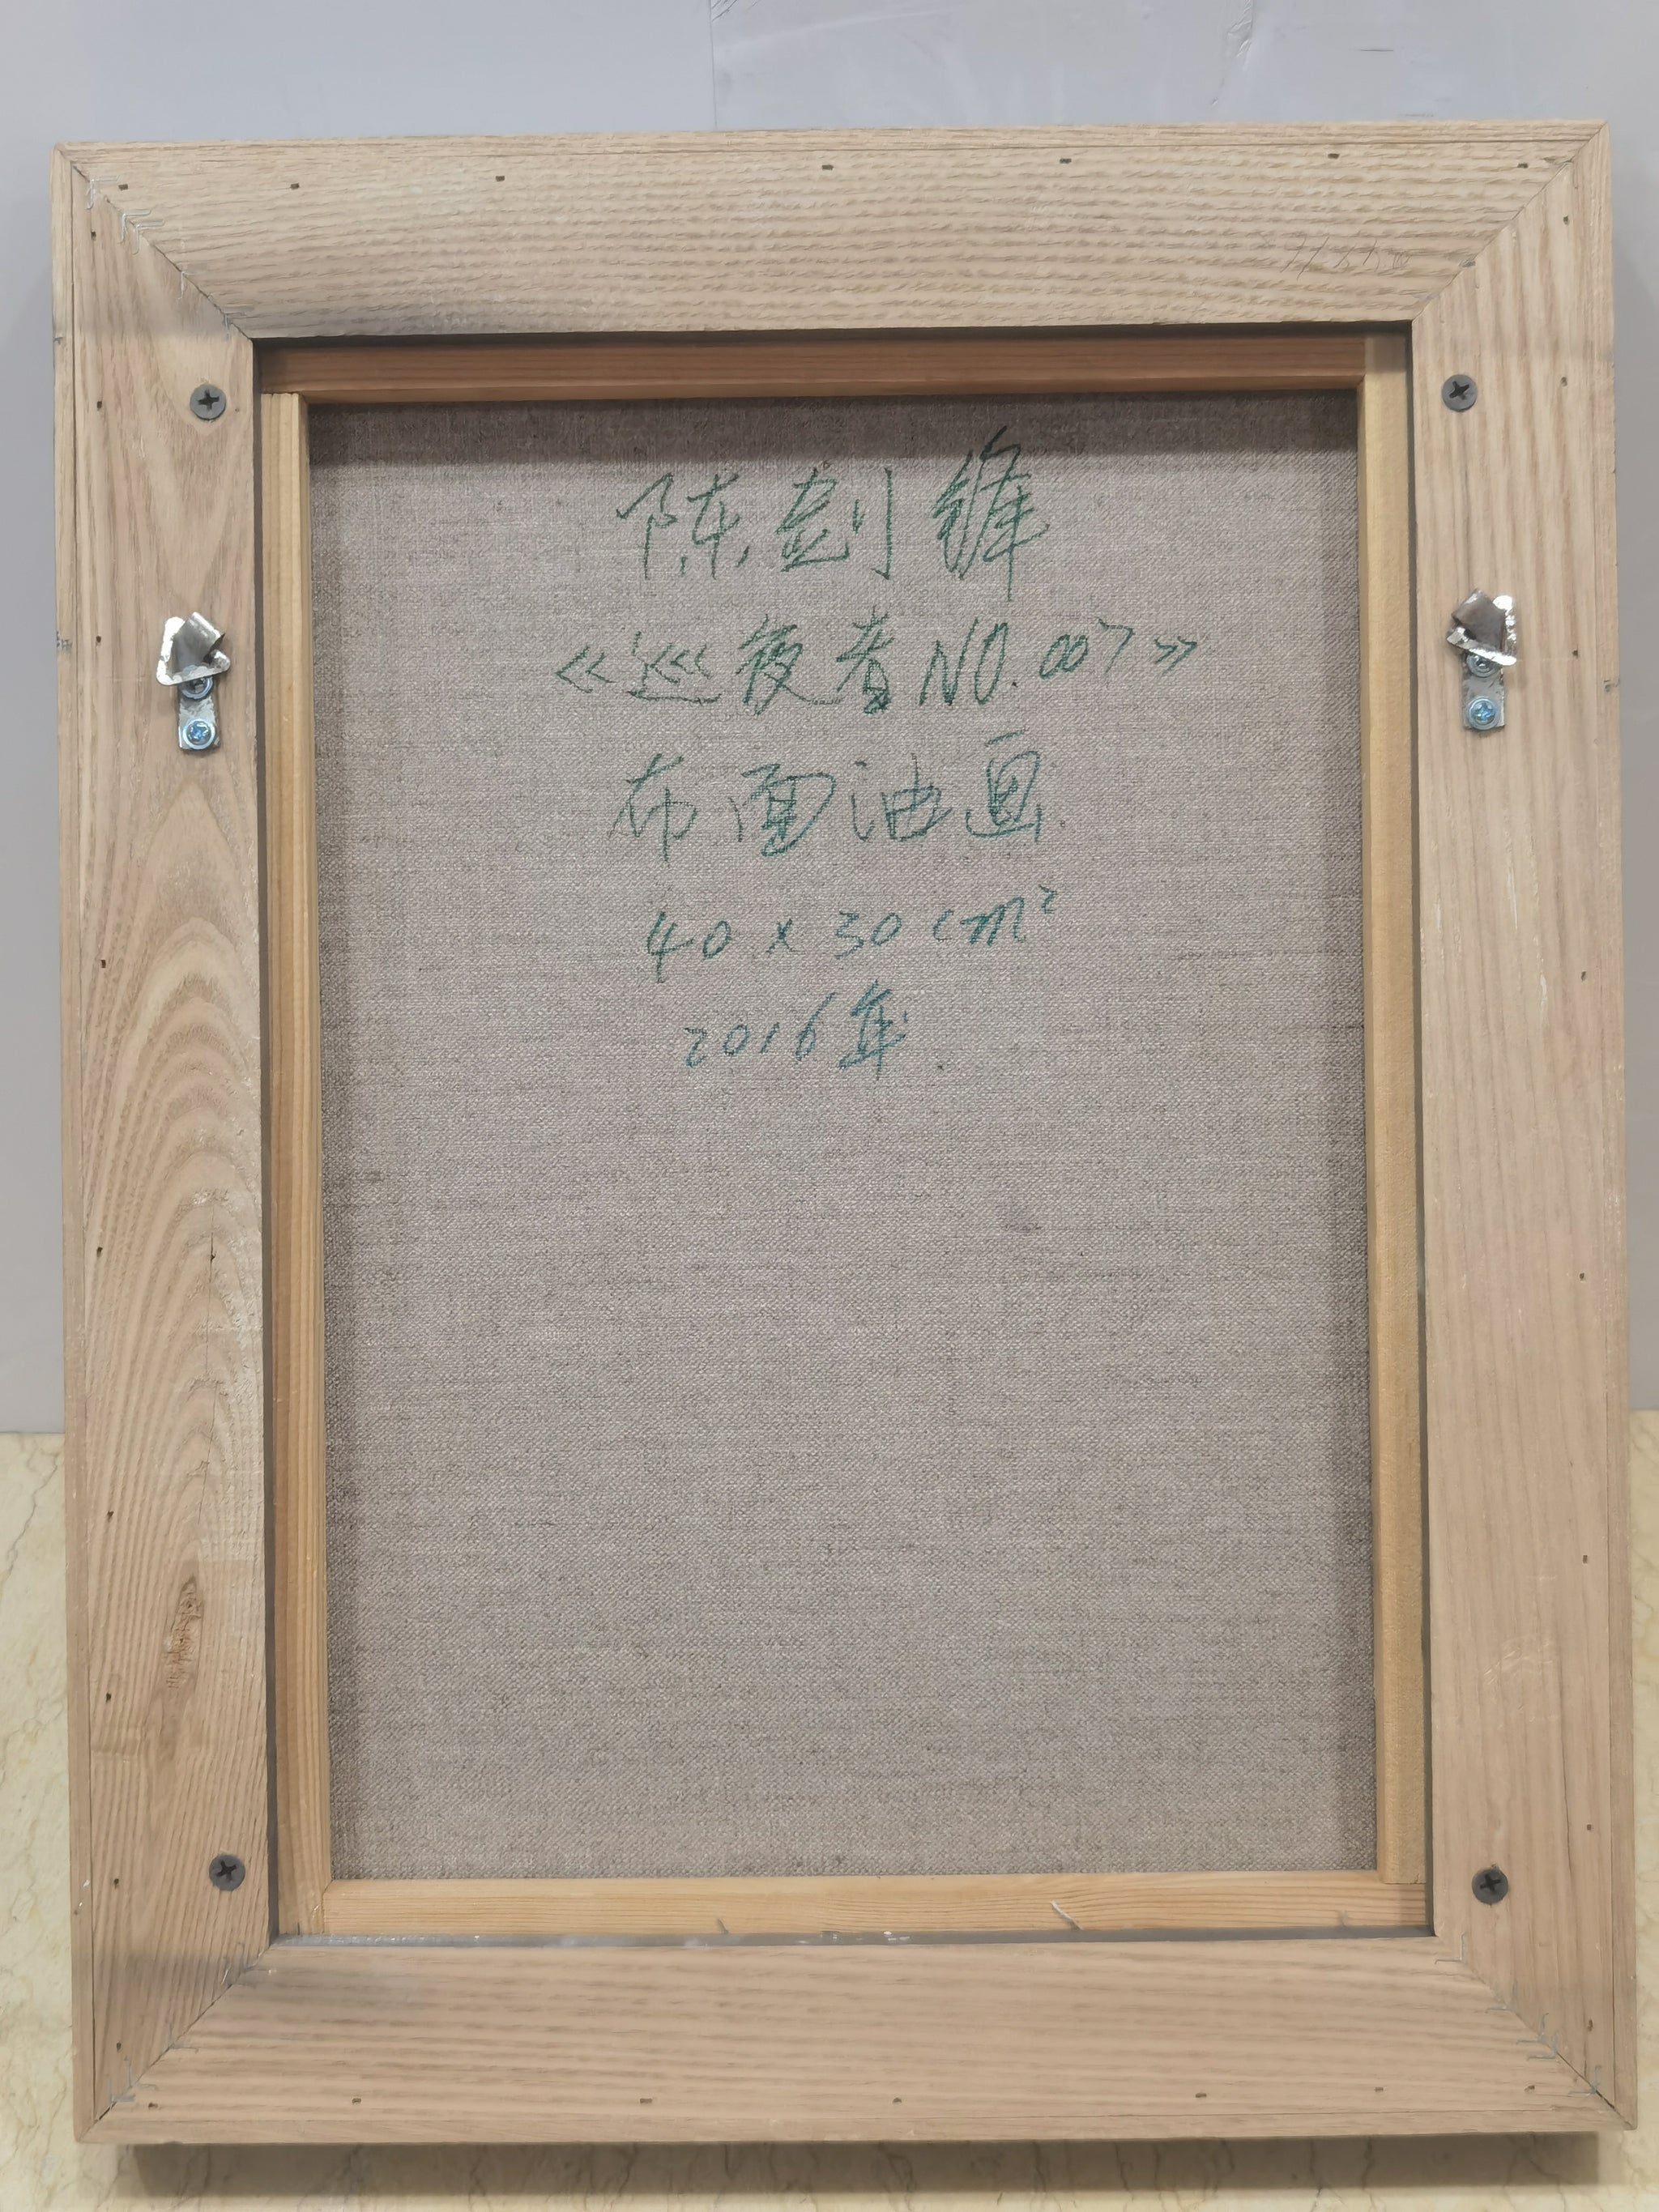 陈剑锋
《巡夜者NO.007》
布面油画.
40×30cm²
2016年.